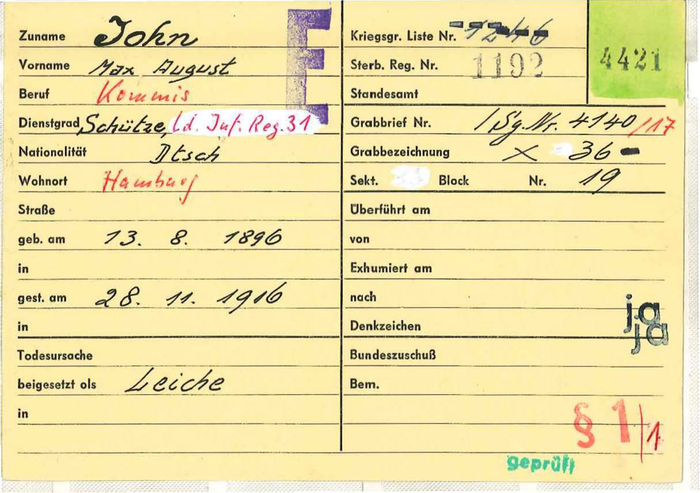 Zuname John
Vorname Max August
Beruf Kommis
Dienstgrad Schütze, Ld. Inf. Reg. 31
Nationalität Dtsch
Wohnort Hamburg
Straße
geb. am 13. 8. 1896
in
gest. am 28. 11. 1916
in
Todesursache
beigesetzt als Leiche
in
E
Kriegsgr. Liste Nr. 1246
Sterb. Reg. Nr. 1192
4421
Standesamt
Grabbrief Nr. /Sg. Nr. 4140/17
Grabbezeichnung X 36
Sekt. Block Nr. 19
Überführt am
von
Exhumiert am
nach ja
Denkzeichen ja
Bundeszuschuß
Bem.
§ 1/1
geprüft